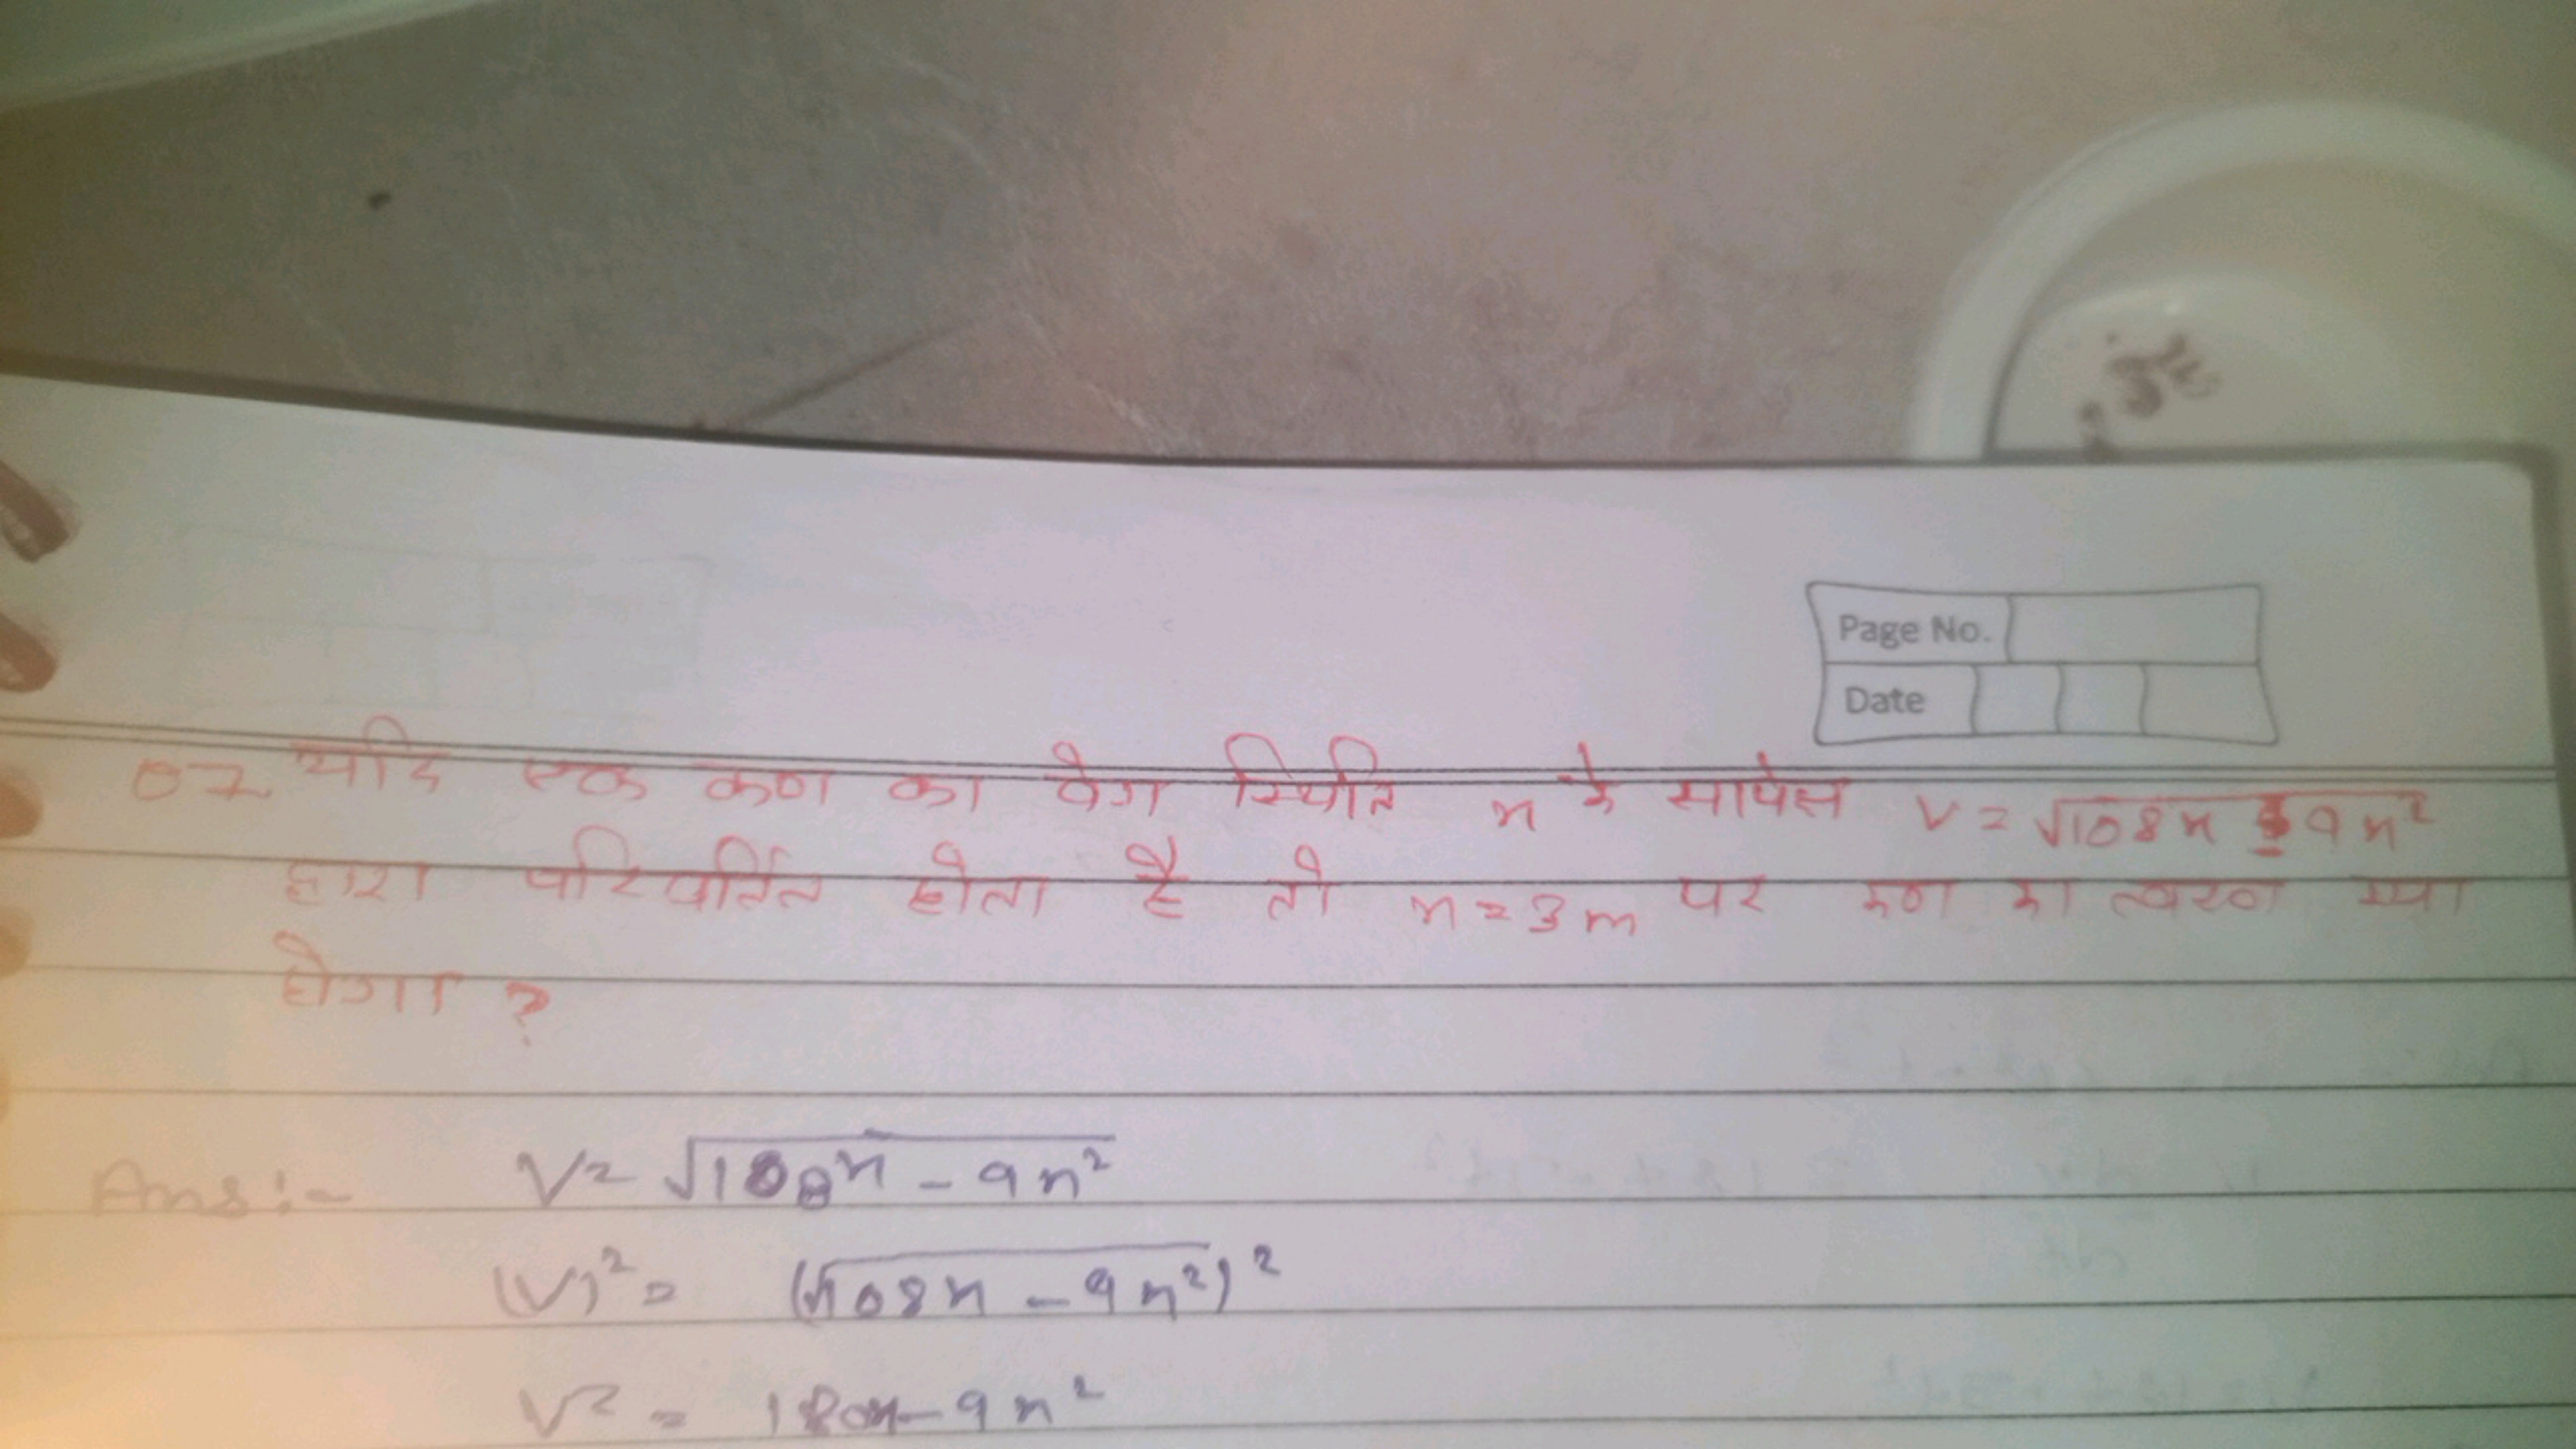 Page No.
Date
07 यदि एक कण का वेग स्थिति x के सापेक्ष v = √108x - 9x²
द्वारा परिवर्तित होता है तो x = 3m पर कण का त्वरण क्या
होगा ?
Ans :- V = √108x - 9x²
(V)² = (√108x - 9x²)²
V² = 180x - 9x²